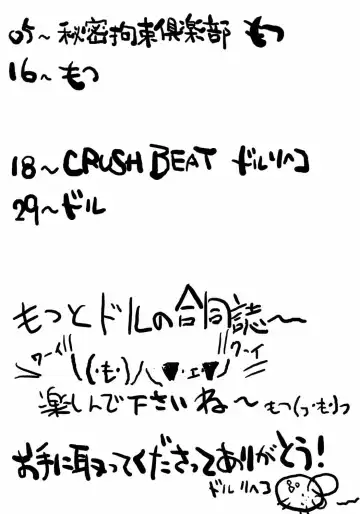 05~秘密拘束倶楽部 もつ
16~もつ
18~CRUSH BEAT ドルリヘコ
29~ドル
もつとドルの合同誌~
ワーイ \(・も・)/\▼・ェ・▼/ ワーイ
楽しんで下さいね~ もつ(っ・も・)っ
お手に取ってくださってありがとう!
ドルリヘコ